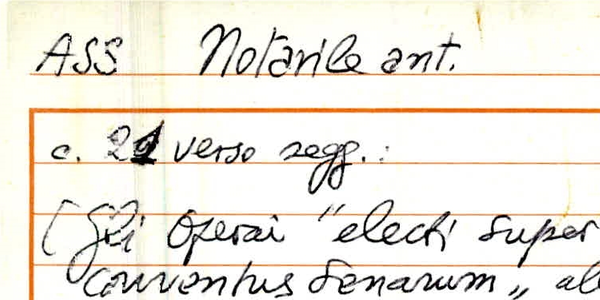 ASS Notarile ant.
c. 21 verso segg.:
[Gli Operai "electi super
conventus Senarum" al